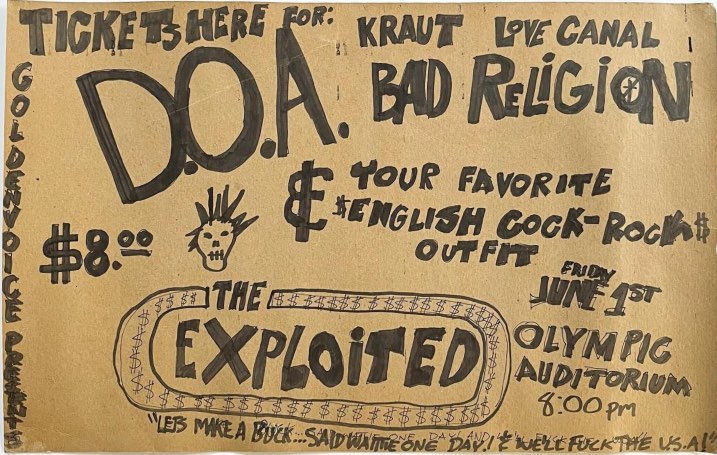 TICKETS HERE FOR: KRAUT LOVE CANAL
D.O.A. BAD RELIGION
GOLDENVOICE PRESENTS
& YOUR FAVORITE
$ENGLISH COCK-ROCK$
OUTFIT
$8.00
FRIDAY
JUNE 1ST
THE
EXPLOITED
OLYMPIC
AUDITORIUM
8:00 pm
"LETS MAKE A BUCK... SAID WATTIE ONE DAY! & WE'LL FUCK THE U.S.A!"